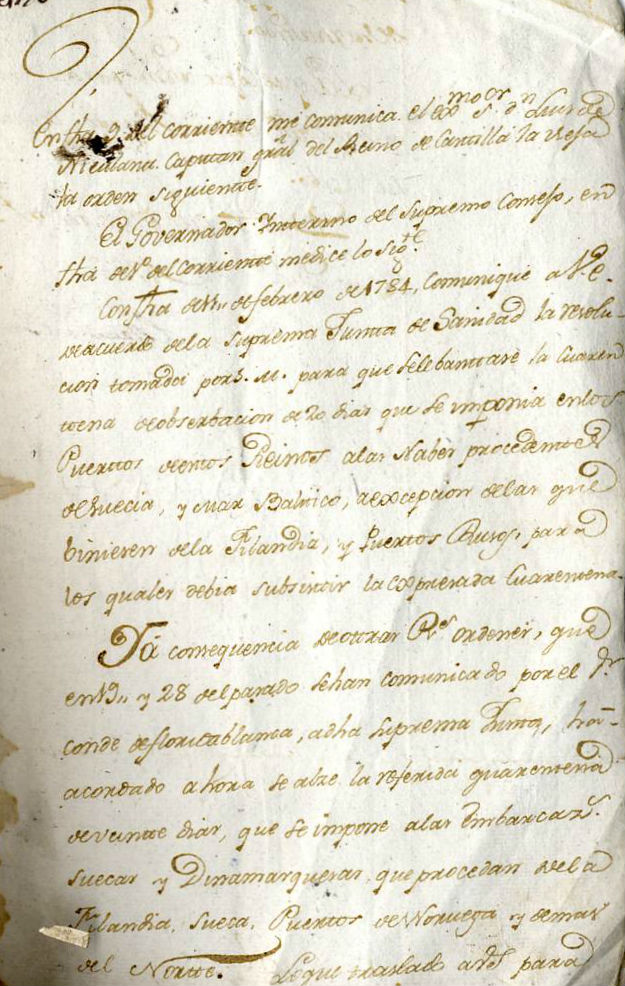 En fha 9 del corriente me comunica el Exmo Sr. dn Luis de
Nieulana Capitan gral del Reino de Castilla la Vieja
la orden siguiente.
El Governador Interino del Supremo Consejo, en
fha de 1º del corriente me dice lo sigte
Con fha de 11 de febrero de 1784, comuniqué a V.E.
de acuerdo de la Suprema Junta de Sanidad la resolu-
cion tomada por S. M. para que se lebantare la Quaren
tena de obserbacion de 20 dias que se imponia en los
Puertos de estos Reinos a las Nabes procedentes
de Suecia, y Mar Baltico, a excepcion de las que
biniesen de la Filandia, y Puertos Rusos, para
los quales debia subsistir la expresada Cuarentena.
Y a consequencia de otras Rs ordenes, que
en 19,, y 28 del pasado se han comunicado por el Sr.
conde de floridablanca, a dha Suprema Junta, ha
acordado ahora se alze la referida quarentena
de veinte dias, que se impone a las Embarcazs.
suecas y Dinamarquesas, que procedan de la
Filandia, sueca, Puertos de Noruega y demas
del Norte. Lo que traslado a Vd para